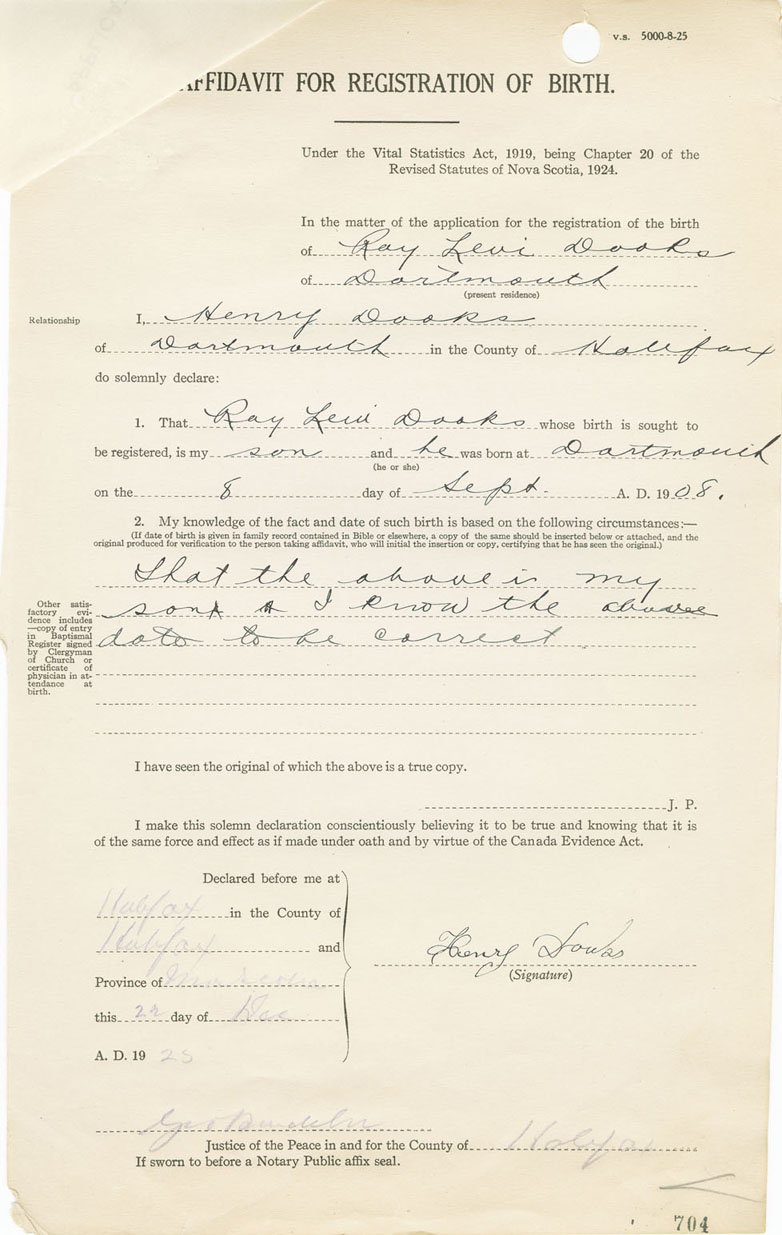 V.S. 5000-8-25
AFFIDAVIT FOR REGISTRATION OF BIRTH.
Under the Vital Statistics Act, 1919, being Chapter 20 of the
Revised Statutes of Nova Scotia, 1924.
In the matter of the application for the registration of the birth
of Ray Levi Dooks
of Dartmouth
(present residence)
Relationship
I, Henry Dooks
of Dartmouth in the County of Halifax
do solemnly declare:
1. That Ray Levi Dooks whose birth is sought to
be registered, is my son and he was born at Dartmouth
(he or she)
on the 8 day of Sept. A. D. 1908.
2. My knowledge of the fact and date of such birth is based on the following circumstances:—
(If date of birth is given in family record contained in Bible or elsewhere, a copy of the same should be inserted below or attached, and the
original produced for verification to the person taking affidavit, who will initial the insertion or copy, certifying that he has seen the original.)
That the above is my
son & I know the above
date to be correct
Other satis-
factory evi-
dence includes
—copy of entry
in Baptismal
Register signed
by Clergyman
of Church or
certificate of
physician in at-
tendance at
birth.
I have seen the original of which the above is a true copy.
J. P.
I make this solemn declaration conscientiously believing it to be true and knowing that it is
of the same force and effect as if made under oath and by virtue of the Canada Evidence Act.
Declared before me at
Halifax in the County of
Halifax and
Province of Nova Scotia
this 22 day of Dec
A. D. 19 25
Henry Dooks
(Signature)
Justice of the Peace in and for the County of Halifax
If sworn to before a Notary Public affix seal.
704